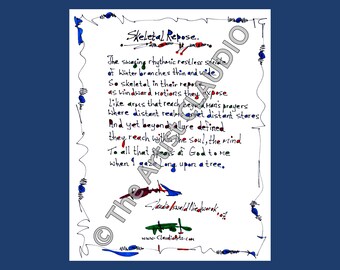 Skeletal Repose.
The swaying rhythmic restless
of Winter branches thin and wide
So skeletal in their repose
as windward motions they expose
Like arms that reach beyond man's prayers
Where distant realms meet distant stares
And yet beyond are defined
they reach within the soul, the mind
To all that speaks of God to me
when I gaze long upon a tree.
www.ClaudioArts.com
© The Artist CLAUDIO